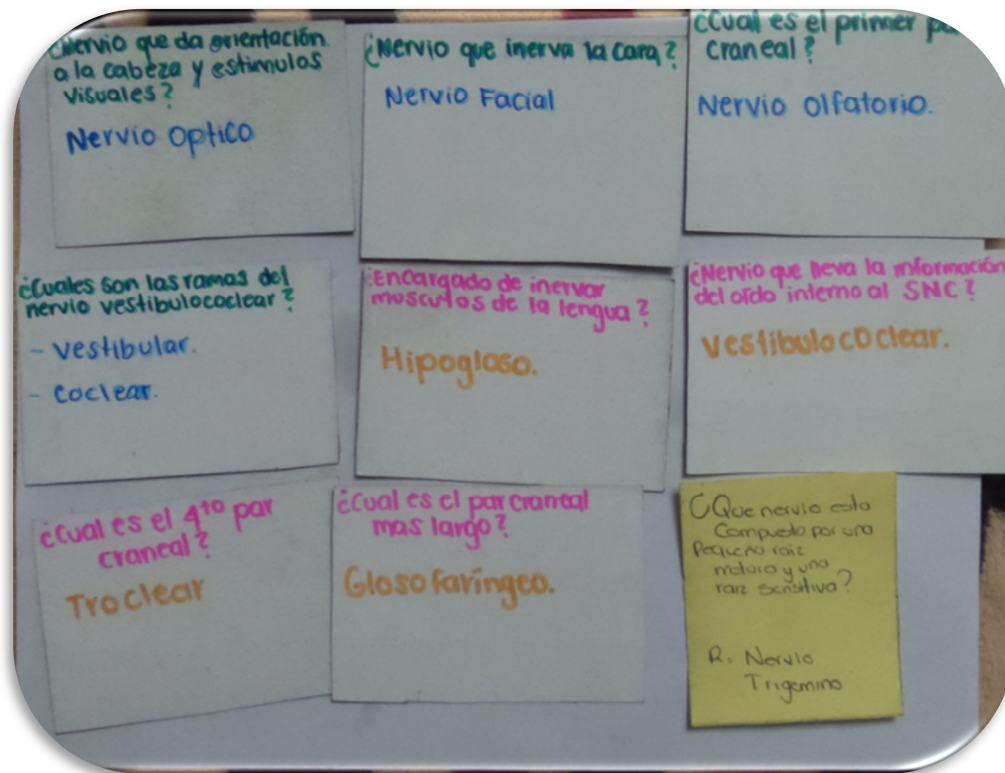 ¿Nervio que da orientación
a la cabeza y estimulos
visuales?
Nervio Optico
¿Nervio que inerva la cara?
Nervio Facial
¿Cual es el primer
craneal?
Nervio Olfatorio.
¿Cuales son las ramas del
nervio vestibulococlear?
- Vestibular.
- Coclear.
¿Encargado de inervar
musculos de la lengua?
Hipogloso.
¿Nervio que lleva la información
del oído interno al SNC?
Vestibulococlear.
¿Cual es el 4to par
craneal?
Troclear
¿Cual es el par craneal
mas largo?
Glosofaríngeo.
¿Que nervio esta
Compuesto por una
Pequeña raiz
motora y una
raiz sensitiva?
R. Nervio
Trigemino